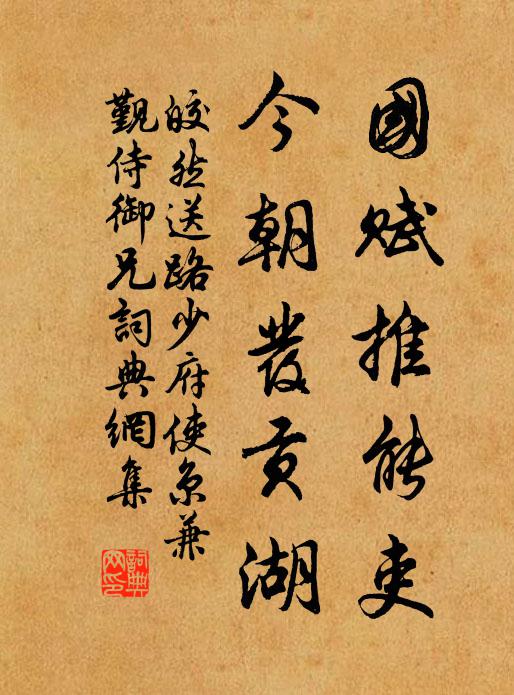 國賦推能吏
今朝發貢湖
皎然送路少府使京兼
覲侍御兄詞典網集
詞典網印